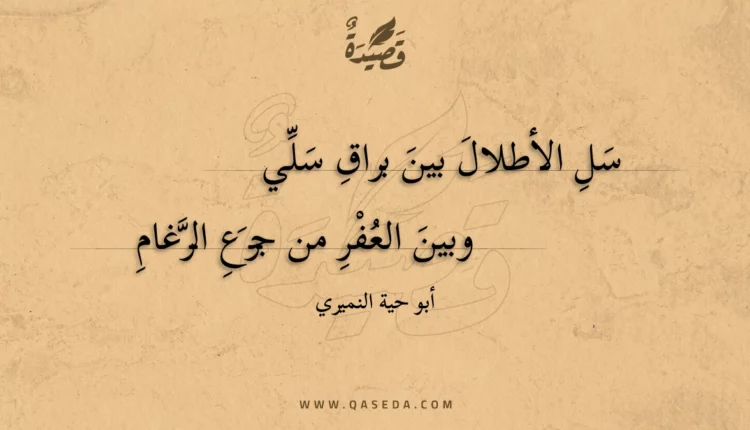 قَصِيدَةٌ
سَلِ الأطلالَ بينَ براقِ سَلِّي
وبينَ العُفْرِ من جرَعِ الرَّغامِ
أبو حية النميري
WWW.QASEDA.COM